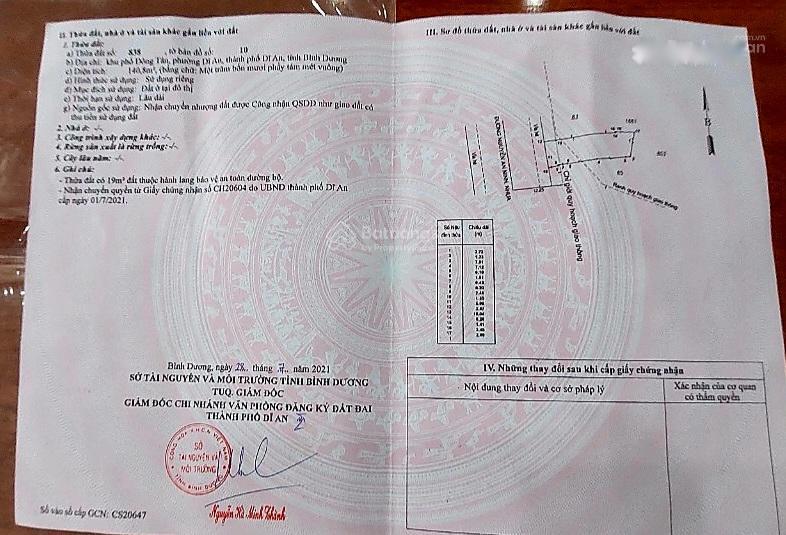 II. Thửa đất, nhà ở và tài sản khác gắn liền với đất
1. Thửa đất:
a) Thửa đất số: 838 , tờ bản đồ số: 10
b) Địa chỉ: khu phố Đông Tân, phường Dĩ An, thành phố Dĩ An, tỉnh Bình Dương
c) Diện tích: 140,8m², (bằng chữ: Một trăm bốn mươi phẩy tám mét vuông)
d) Hình thức sử dụng: Sử dụng riêng
đ) Mục đích sử dụng: Đất ở tại đô thị
e) Thời hạn sử dụng: Lâu dài
g) Nguồn gốc sử dụng: Nhận chuyển nhượng đất được Công nhận QSDĐ như giao đất có
thu tiền sử dụng đất
2. Nhà ở: -/-
3. Công trình xây dựng khác: -/-
4. Rừng sản xuất là rừng trồng: -/-
5. Cây lâu năm: -/-
6. Ghi chú:
- Thửa đất có 19m² đất thuộc hành lang bảo vệ an toàn đường bộ.
- Nhận chuyển quyền từ Giấy chứng nhận số CH20604 do UBND thành phố Dĩ An
cấp ngày 01/7/2021.
Bình Dương, ngày 28 tháng 7 năm 2021
SỞ TÀI NGUYÊN VÀ MÔI TRƯỜNG TỈNH BÌNH DƯƠNG
TUQ. GIÁM ĐỐC
GIÁM ĐỐC CHI NHÁNH VĂN PHÒNG ĐĂNG KÝ ĐẤT ĐAI
THÀNH PHỐ DĨ AN
SỞ
TÀI NGUYÊN VÀ
MÔI TRƯỜNG
TỈNH BÌNH DƯƠNG
Nguyễn Hà Minh Khánh
Số vào sổ cấp GCN: CS20647
III. Sơ đồ thửa đất, nhà ở và tài sản khác gắn liền với đất
B
83
ĐƯỜNG NGUYỄN AN NINH, NHỰA
Vỉa hè
Chỉ giới quy hoạch giao thông
Ranh quy hoạch giao thông
85
Số hiệu
đỉnh thửa
Chiều dài
(m)
Batdongsan
by PropertyGuru
IV. Những thay đổi sau khi cấp giấy chứng nhận
Nội dung thay đổi và cơ sở pháp lý
Xác nhận của cơ quan
có thẩm quyền